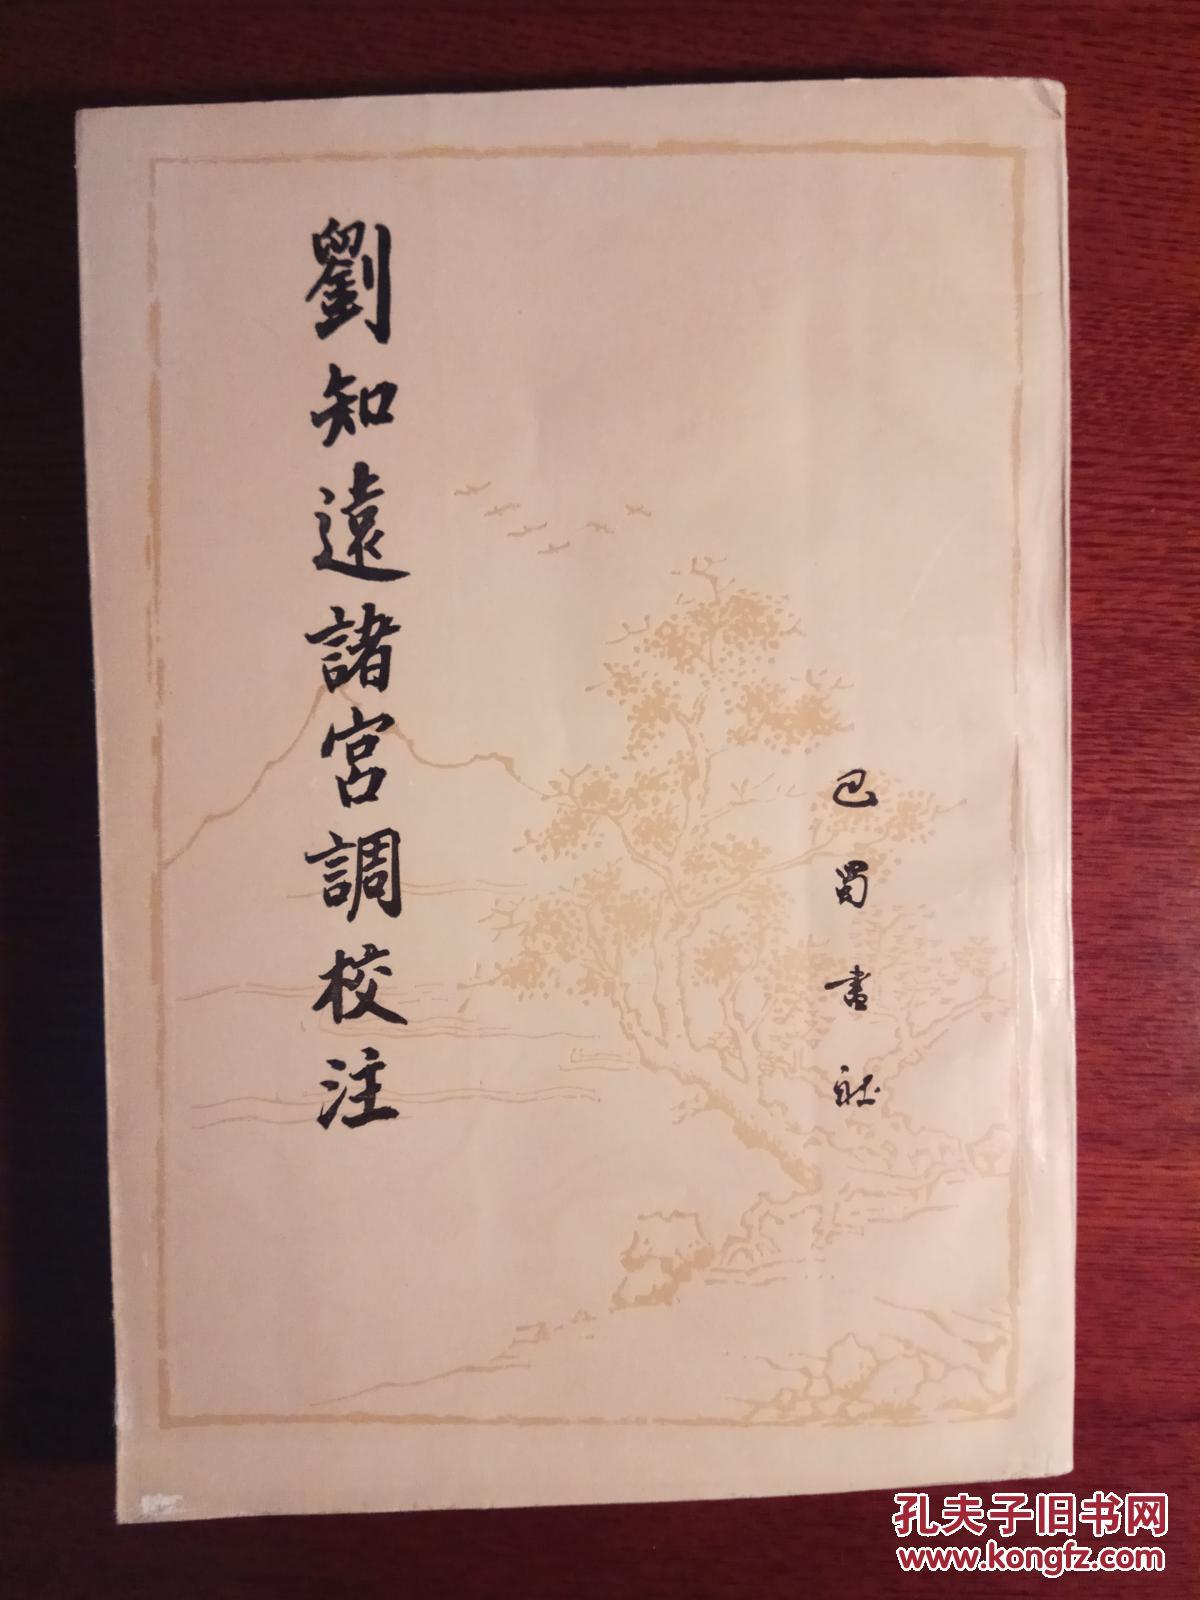 劉知遠諸宮調校注
巴蜀書社
孔夫子旧书网
www.kongfz.com